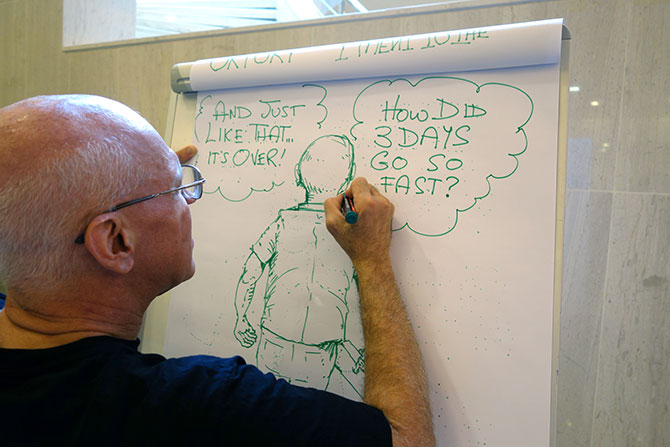 AND JUST
LIKE THAT...
IT'S OVER!
HOW DID
3 DAYS
GO SO
FAST?